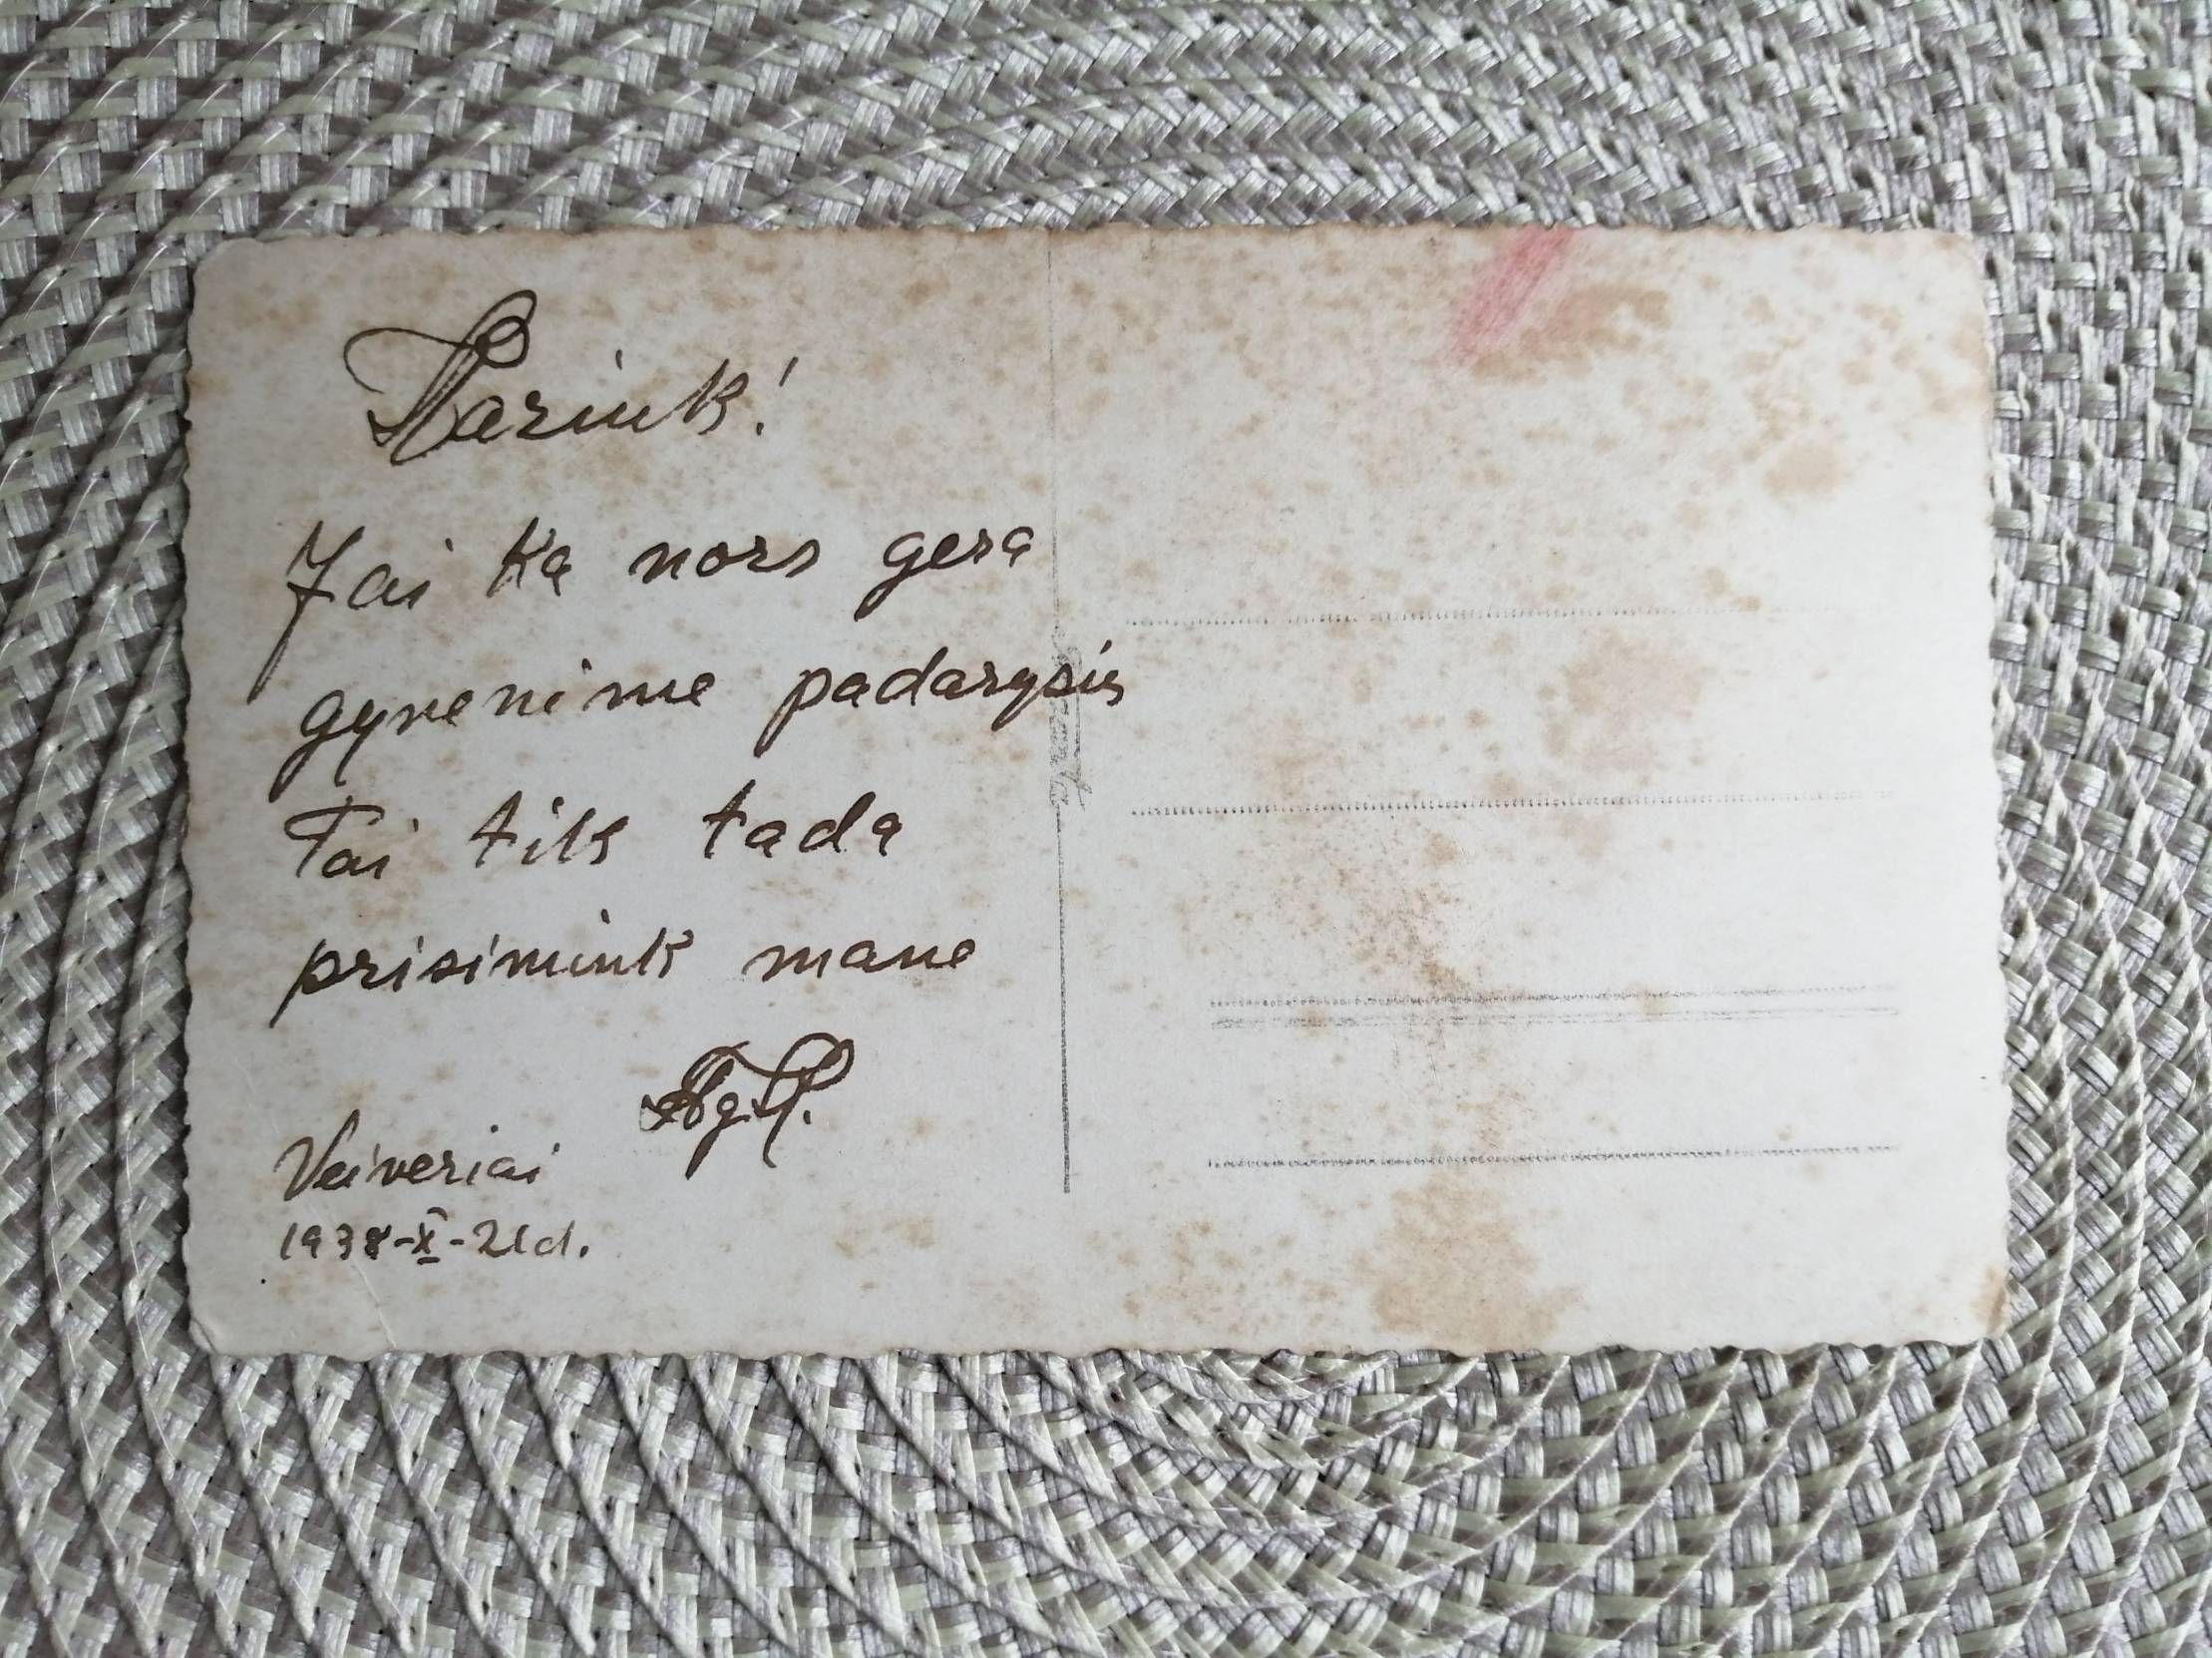 Mariuk!
Jai ką nors gera
gyvenime padarysiu
Tai tik tada
prisimink mane
Ag. P.
Veiveriai
1938-X-21d.